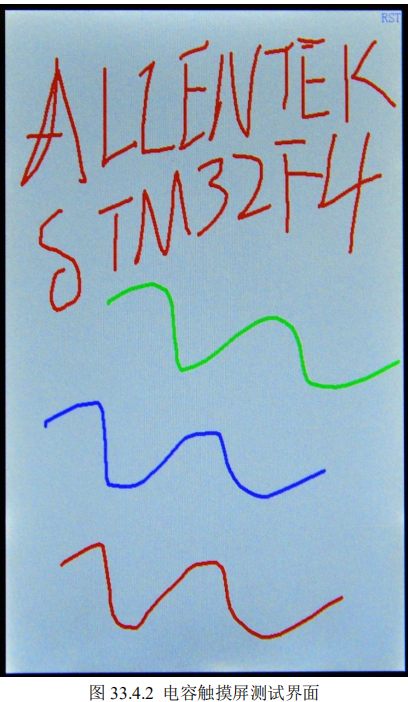 RST
ALLENTEK
STM32F4
图 33.4.2 电容触摸屏测试界面